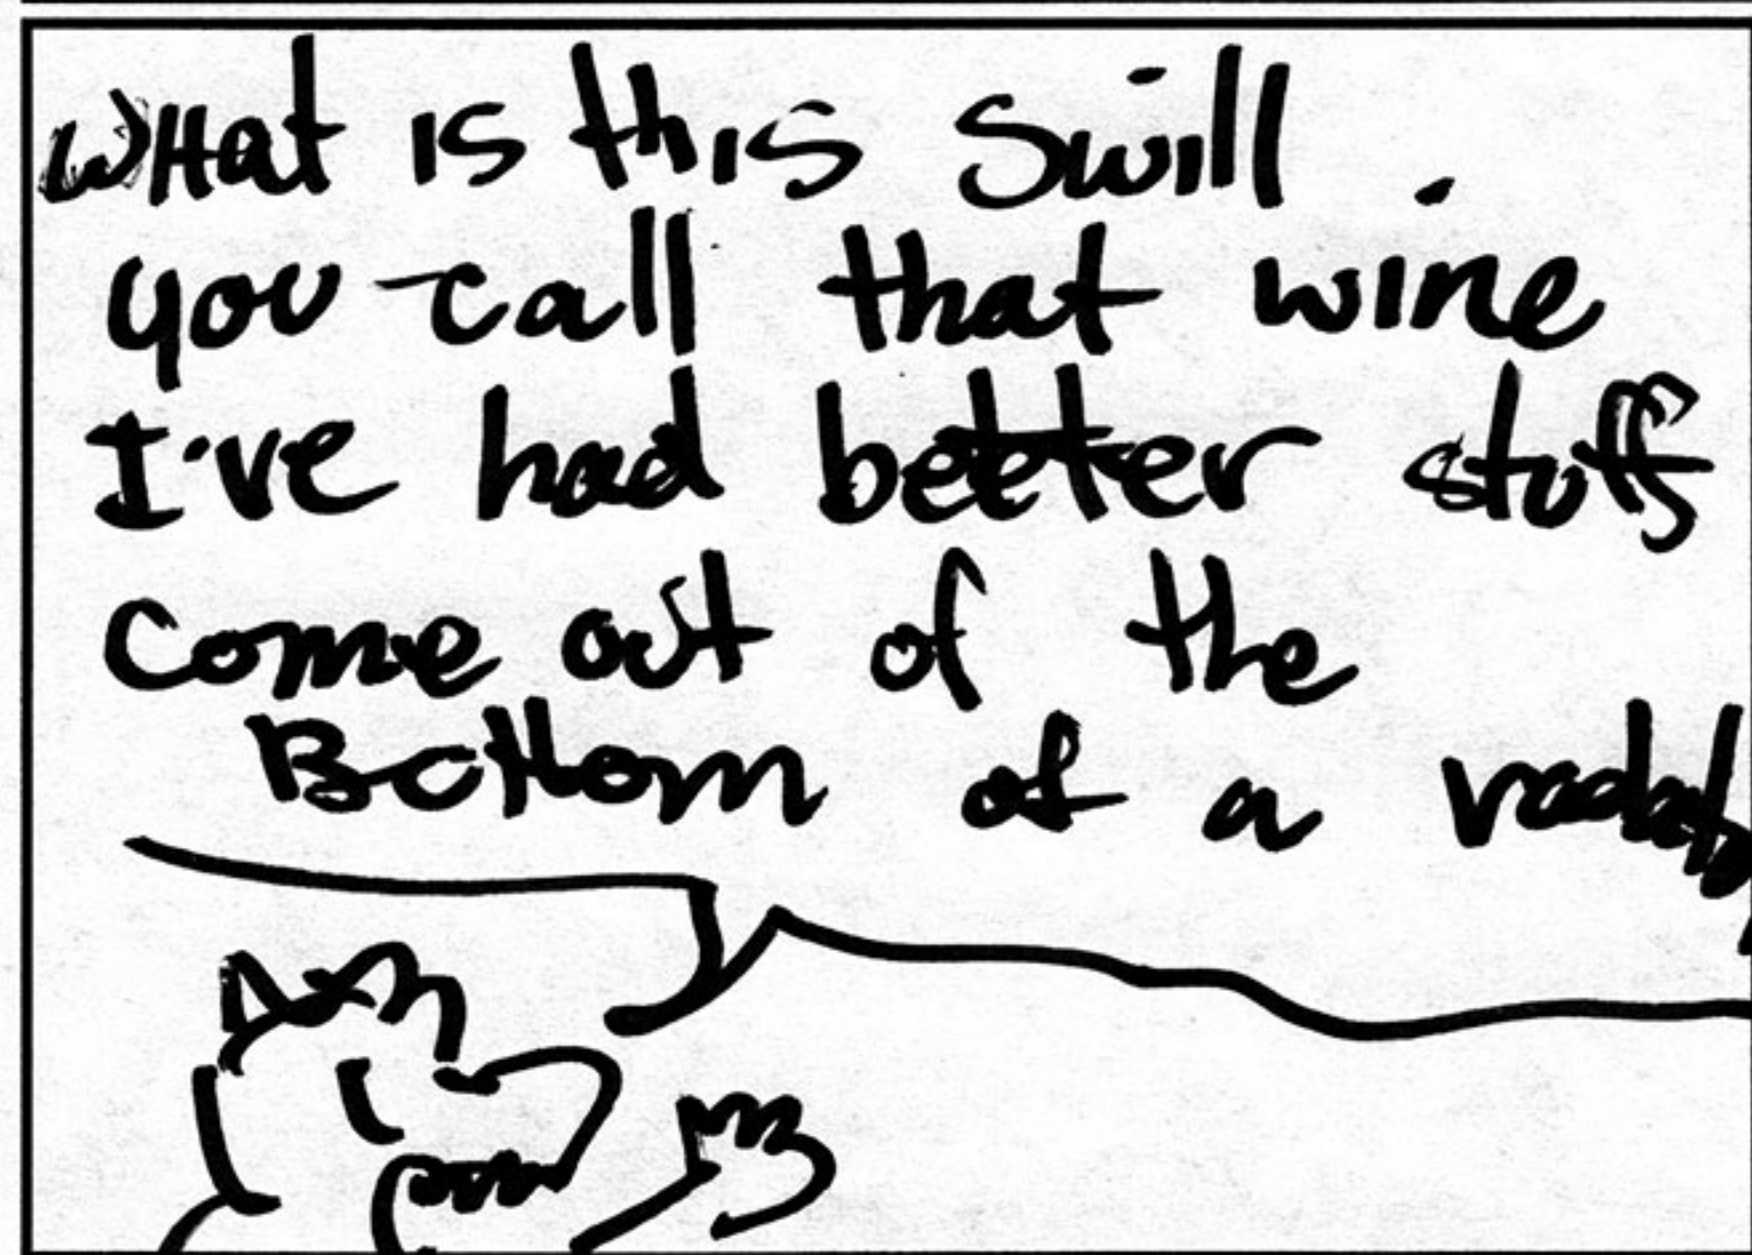 WHat is this Swill.
you call that wine
I've had better stuff
Come out of the
Bottom of a